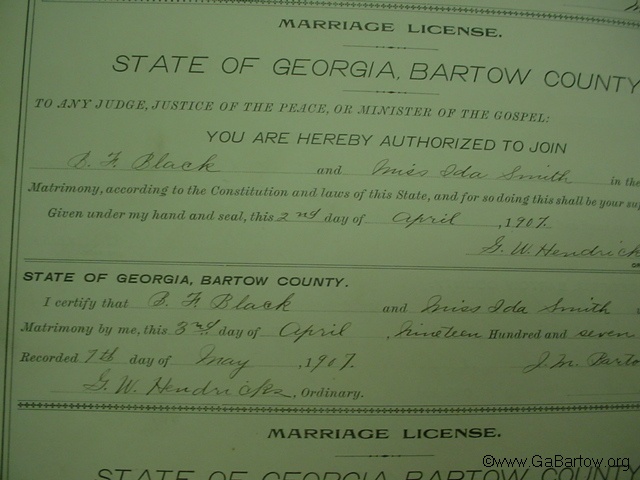 MARRIAGE LICENSE.
STATE OF GEORGIA, BARTOW COUNTY
TO ANY JUDGE, JUSTICE OF THE PEACE, OR MINISTER OF THE GOSPEL:
YOU ARE HEREBY AUTHORIZED TO JOIN
B. F. Black and Miss Ida Smith in the
Matrimony, according to the Constitution and laws of this State, and for so doing this shall be your
Given under my hand and seal, this 2nd day of April, 1907.
G. W. Hendrick
STATE OF GEORGIA, BARTOW COUNTY.
I certify that B. F. Black and Miss Ida Smith
Matrimony by me, this 3rd day of April, nineteen Hundred and seven
Recorded 7th day of May, 1907. J. M. Barto
G. W. Hendricks, Ordinary.
MARRIAGE LICENSE.
STATE OF GEORGIA, BARTOW COUNTY
©www.GaBartow.org